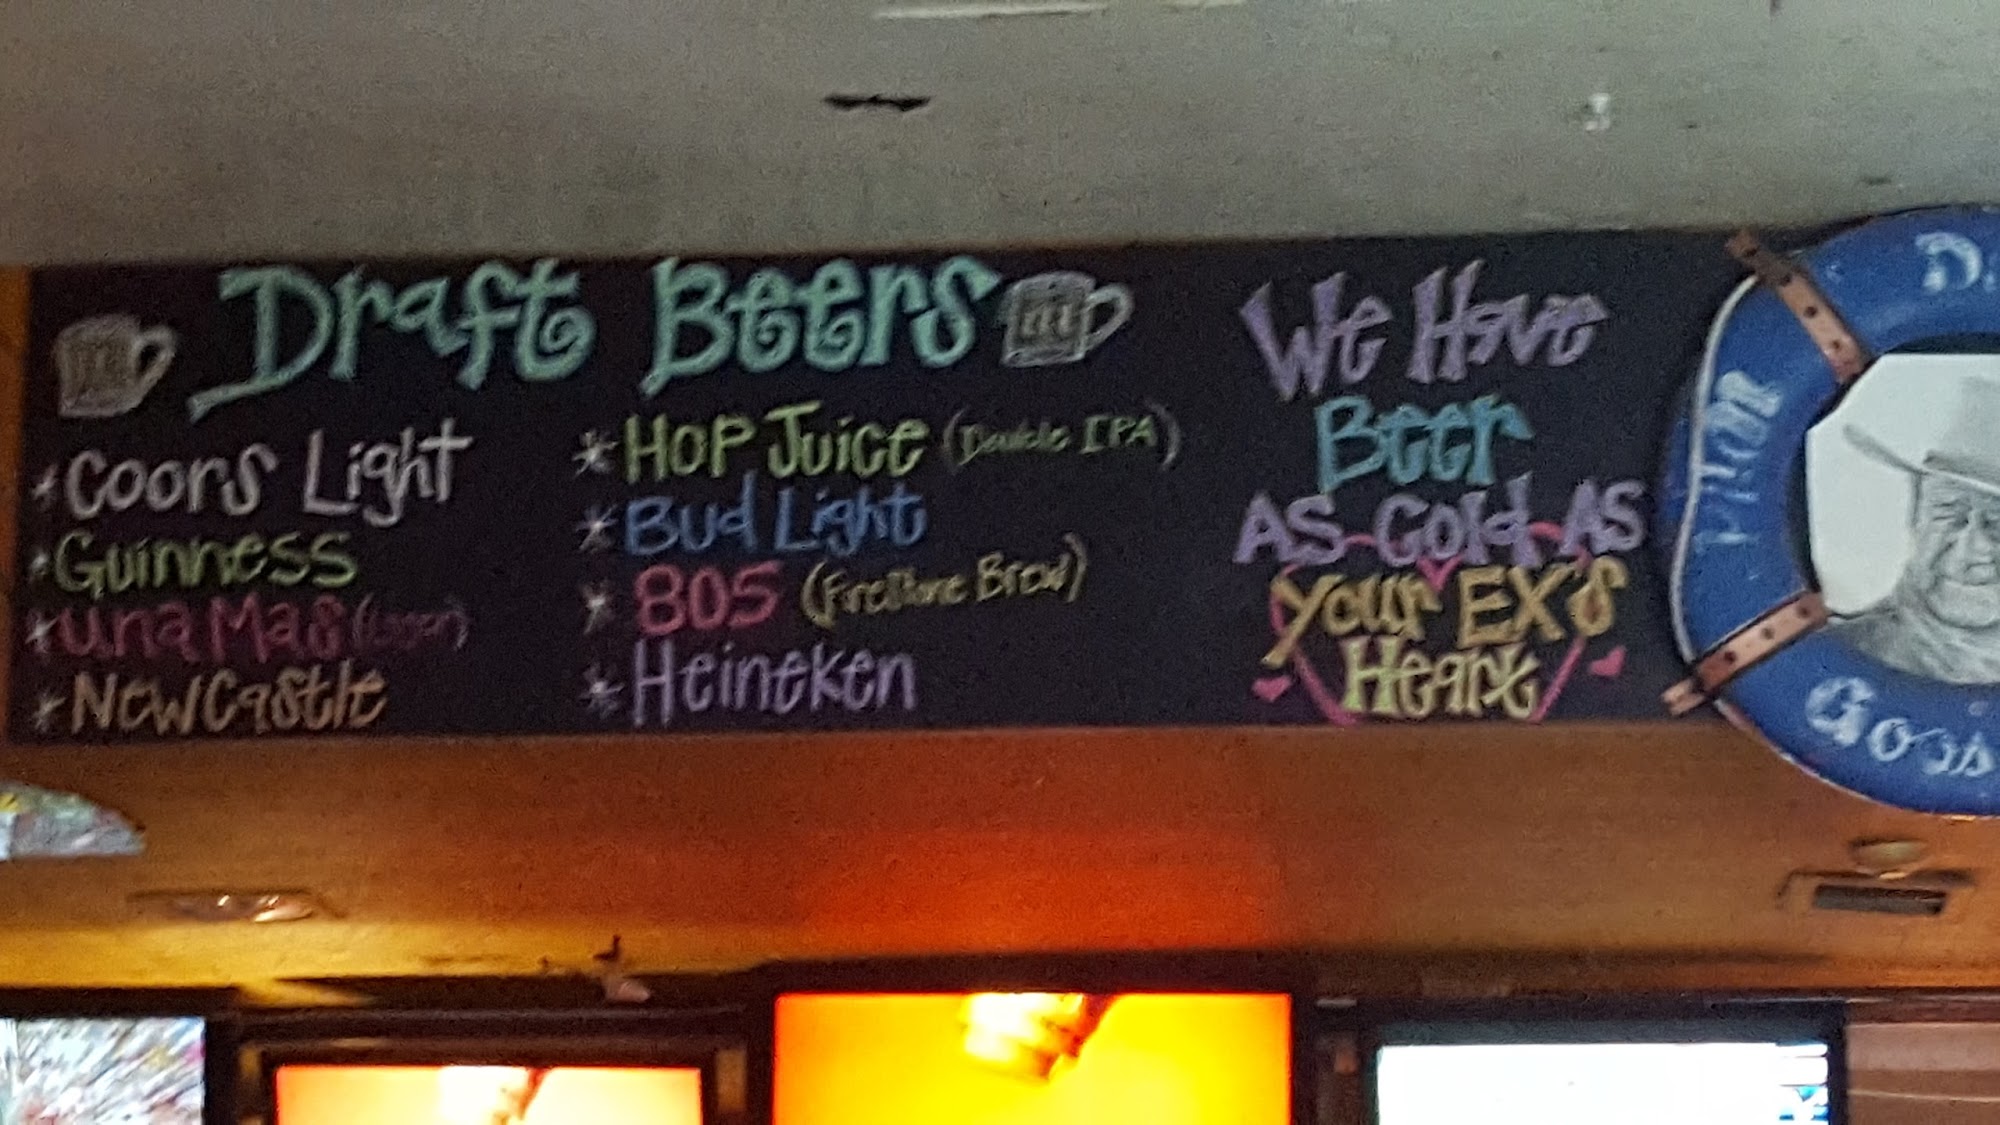 Draft Beers
* Coors Light
* Guinness
* Una Mas (Lager)
* Newcastle
* Hop Juice (Double IPA)
* Bud Light
* 805 (Firestone Brew)
* Heineken
We Have
Beer
AS Cold AS
your EX's
Heart
D.
Goos